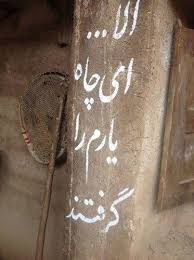 الا...
ای چاه
یارم را
گرفتند